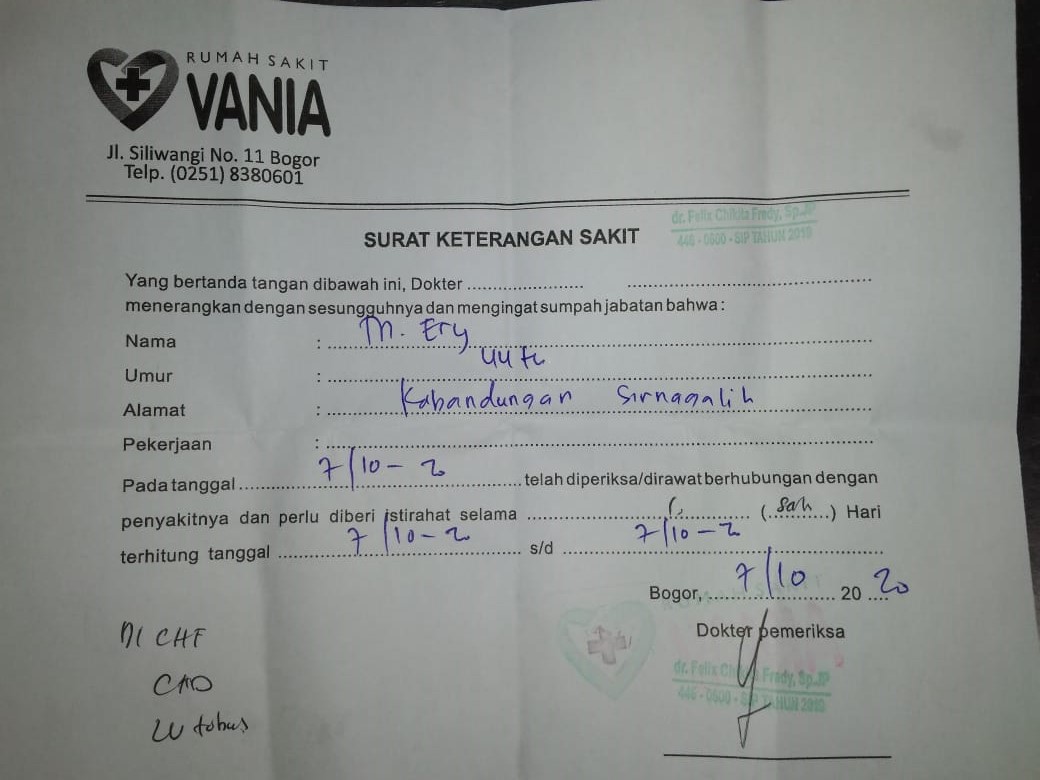 RUMAH SAKIT
VANIA
Jl. Siliwangi No. 11 Bogor
Telp. (0251) 8380601
dr. Felix Chikita Fredy, Sp.JP
446 - 0600 - SIP TAHUN 2019
SURAT KETERANGAN SAKIT
Yang bertanda tangan dibawah ini, Dokter
menerangkan dengan sesungguhnya dan mengingat sumpah jabatan bahwa :
Nama : M. Ery
Umur : 44 th
Alamat : Kabandungan Sirnagalih
Pekerjaan :
Pada tanggal 7/10-20 telah diperiksa/dirawat berhubungan dengan
penyakitnya dan perlu diberi istirahat selama (satu) Hari
terhitung tanggal 7/10-20 s/d 7/10-20
Bogor, 7/10 20 20
Dokter pemeriksa
dr. Felix Chikita Fredy, Sp.JP
446 - 0600 - SIP TAHUN 2019
CHF
CAD